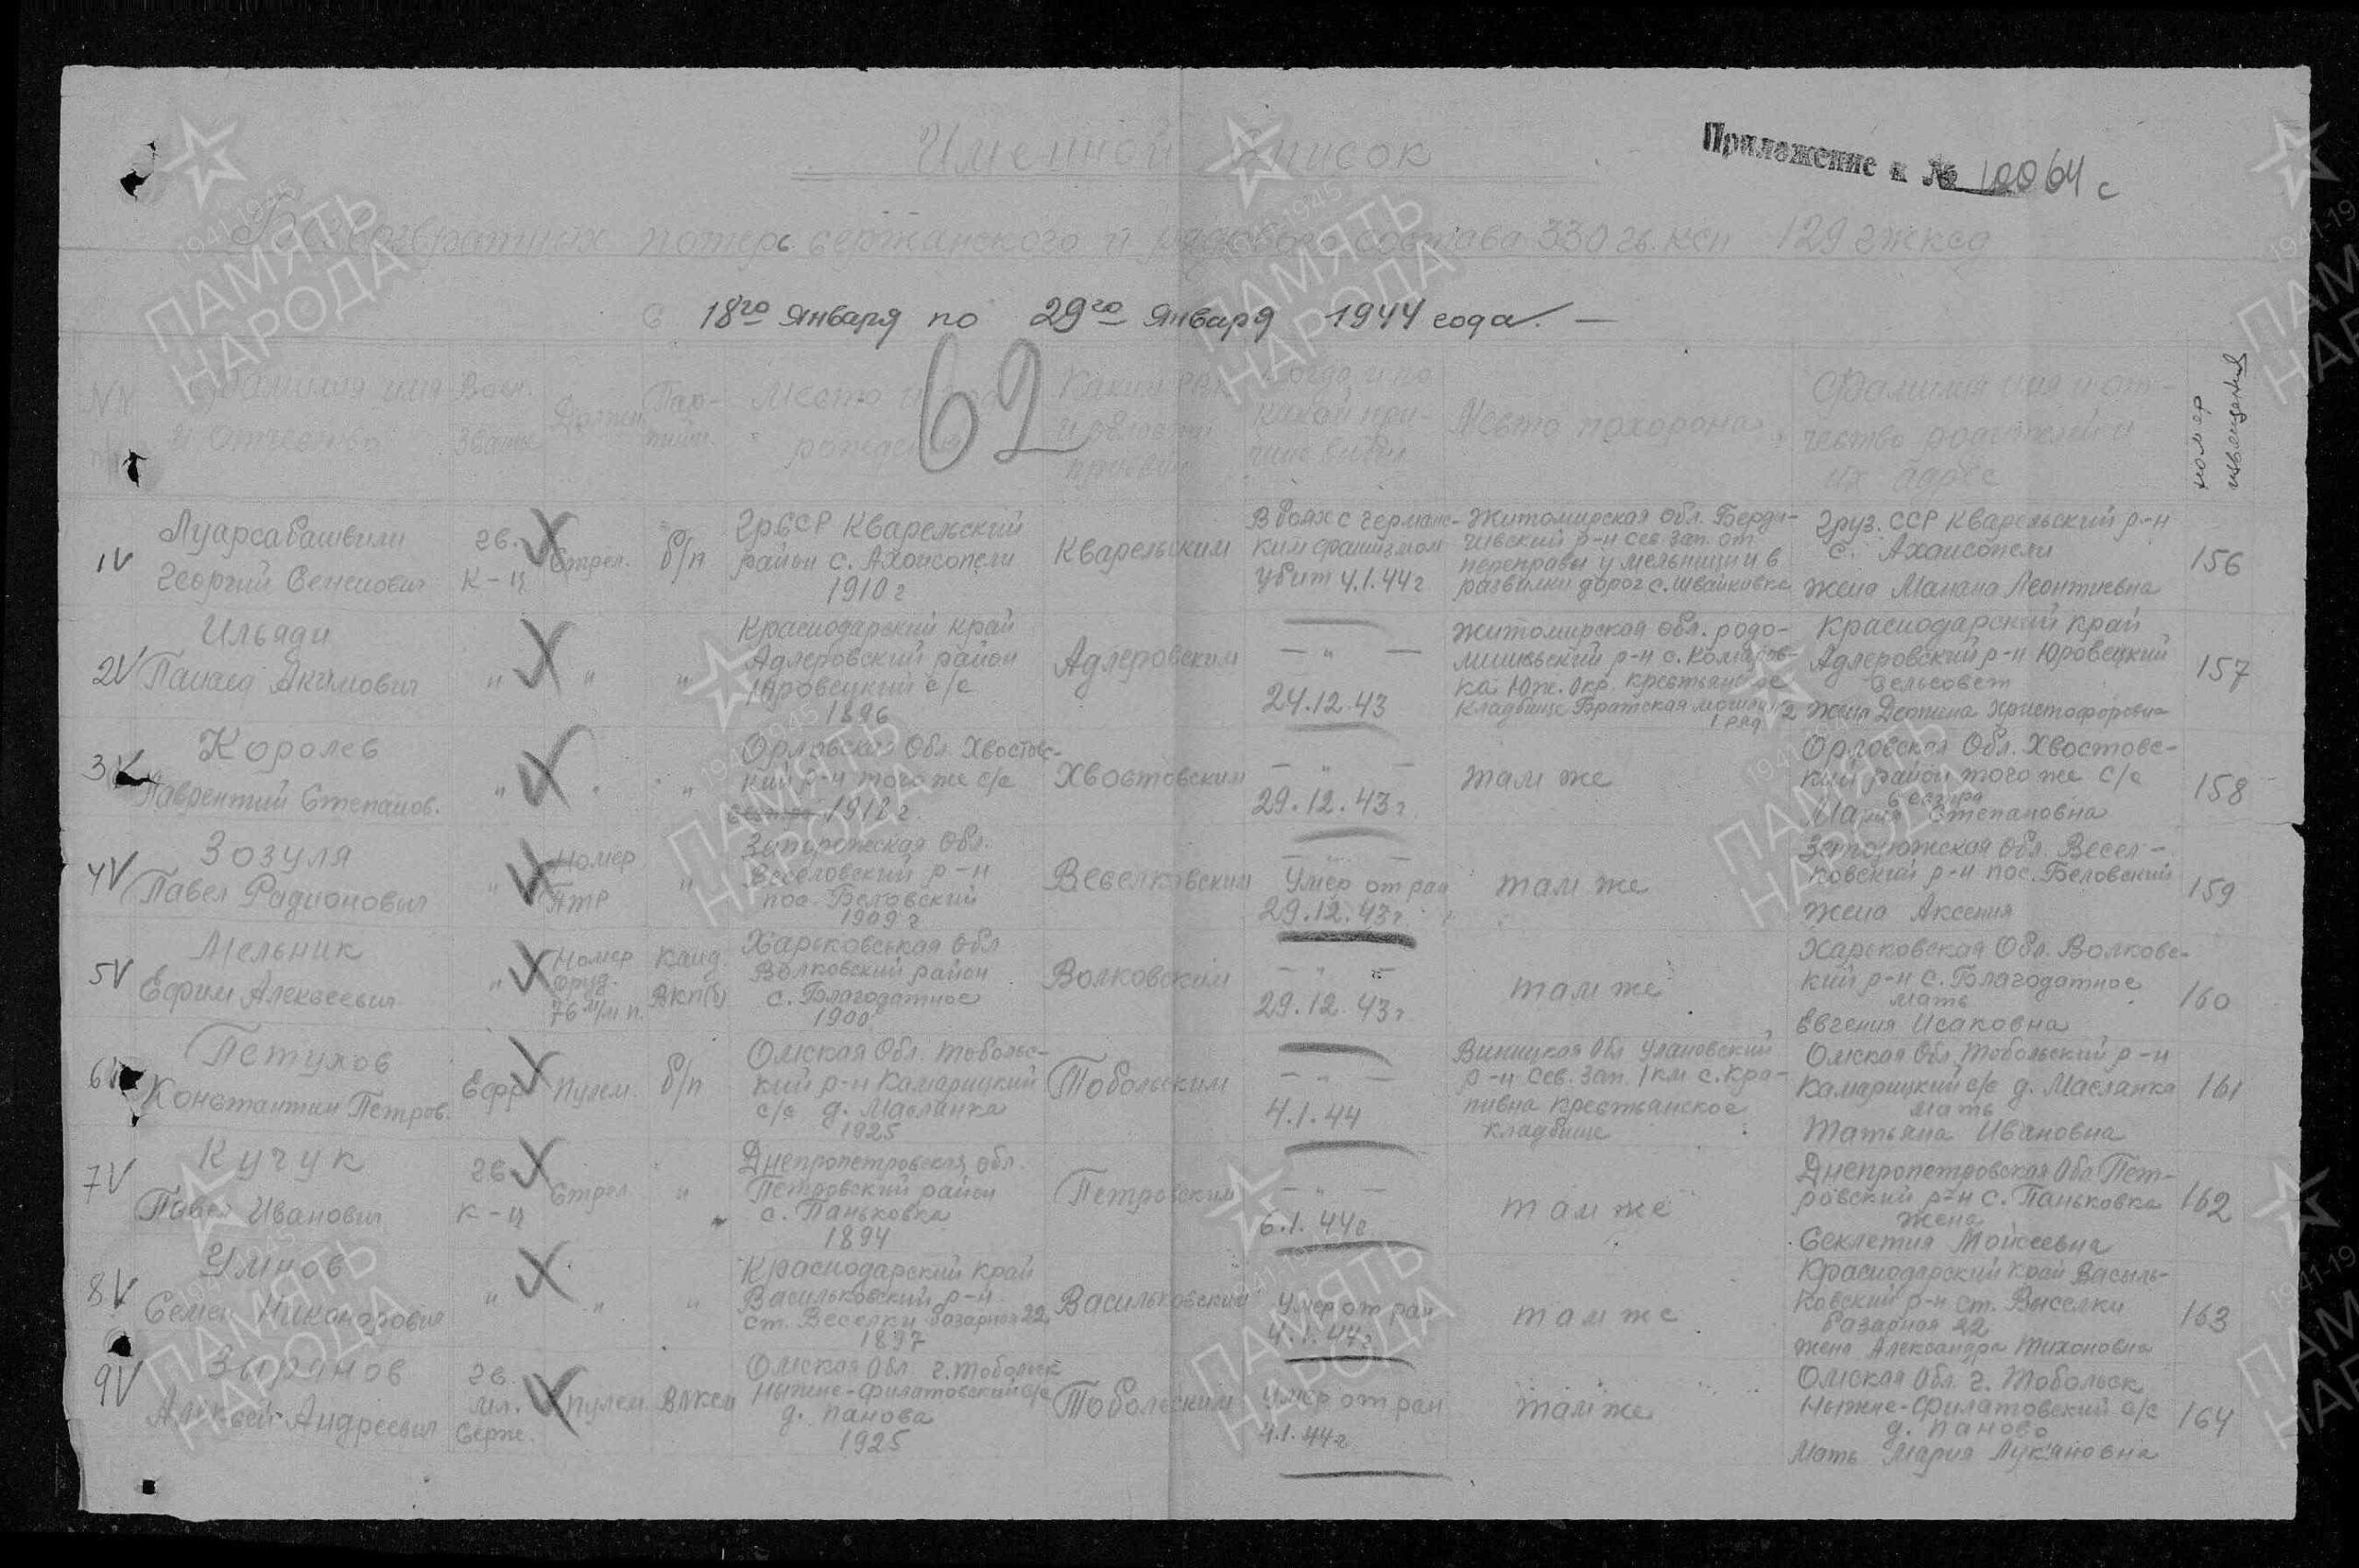 Приложение к № 10064 с
Именной список
Безвозвратных потерь сержанского и рядового состава 330 гв. ксп 129 гжксд
С 18го января по 29го января 1944 года. —
62
NN
Фамилия имя и отчество
Воен. звание
Должн.
Пар-тийн.
Место и рождения
Каким РВК
Когда и по какой при-чине выбыл
Место похорона
Фамилия имя и от-чество родителей и их адрес
номер извещения
1 V
Луарсабашвили
Георгий
гв.
к-ц
Стрел.
б/п
ГрССР Кварельский
район с.
1910 г
Кварельским
В боях с германс-
ким фашизмом
убит 4.1.44 г
Житомирская обл. Берди-
чивский р-н сев. зап. от
переправы у мельницы и в
развилки дорог с. Швайкивка
Груз. ССР Кварельский р-н
с.
жена Манана Леонтиевна
156
2 V
Ильяди
Панаед Акимович
" " "
Краснодарский край
Адлеровский район
Юровецкий с/с
1896
Адлеровским
— " —
24.12.43
Житомирская обл. родо-
мишльский р-н с. Комаров-
ка Юж. Окр. крестьянское
кладбище Братская могила
1 ряд 2
Краснодарский край
Адлеровский р-н Юровецкий
сельсовет
жена Деспина Христофоровна
157
3 V
Королев
Лаврентий Степанов.
" " "
Орловская Обл. Хвостовс-
кий р-н того же с/с
1918 г.
Хвостовским
— " —
29.12.43 г.
там же
Орловская Обл. Хвостовс-
кий район того же с/с
сестра
Мария Степановна
158
4 V
Зозуля
Павел Радионович
"
Номер
ПТР
"
Запорожская Обл.
Веселовский р-н
пос. Беловский
1909 г
Веселковским
— —
Умер от ран
29.12.43 г
там же
Запорожская обл. Весел-
ковский р-н пос. Беловский
жена Аксения
159
5 V
Мельник
Ефим Алексеевич
"
Номер
оруд.
76 м/м п.
Канд.
ВКП(б)
Харьковськая обл
Волковский район
с. Благодатное
1900
Волковским
— " —
29.12.43 г
там же
Харьковская Обл. Волковс-
кий р-н с. Благодатное
мать
Евгения Исаковна
160
6 V
Петухов
Константин Петров.
Ефр
Пулем.
б/п
Омская Обл. Тобольс-
кий р-н Камарицкий
с/с д. Маслянка
1925
Тобольским
— " —
4.1.44
Виницкая Обл Улановский
р-н сев. зап. 1 км с. Кра-
пивна Крестьянское
кладбище
Омская Обл. Тобольский р-н
Камарицкий с/с д. Маслянка
мать
Татьяна Ивановна
161
7 V
Кучук
Павел Иванович
гв
к-ц
Стрел
"
Днепропетровская обл.
Петровский район
с. Паньковка
1894
Петровским
— " —
6.1.44 г
там же
Днепропетровская Обл Пет-
ровский р-н с. Паньковка
жена
Секлетия Мойсеевна
162
8 V
Умнов
Семен Никандрович
" " "
Краснодарский край
Васильковский р-н
ст. Веселки базарная 22
1897
Васильковский
Умер от ран
4.1.44 г
там же
Краснодарский край Василь-
ковский р-н ст. Выселки
базарная 22
жена Александра Тихоновна
163
9 V
Зырянов
Алексей Андреевич
гв.
мл.
Серж.
пулем.
ВЛКСМ
Омская Обл г. Тобольск
Ныжне-Филатовский с/с
д. Панова
1925
Тобольским
Умер от ран
4.1.44 г
там же
Омская Обл г. Тобольск
Ныжне-Филатовский с/с
д. Паново
Мать Мария Лук'яновна
164
1941-1945
ПАМЯТЬ
НАРОДА